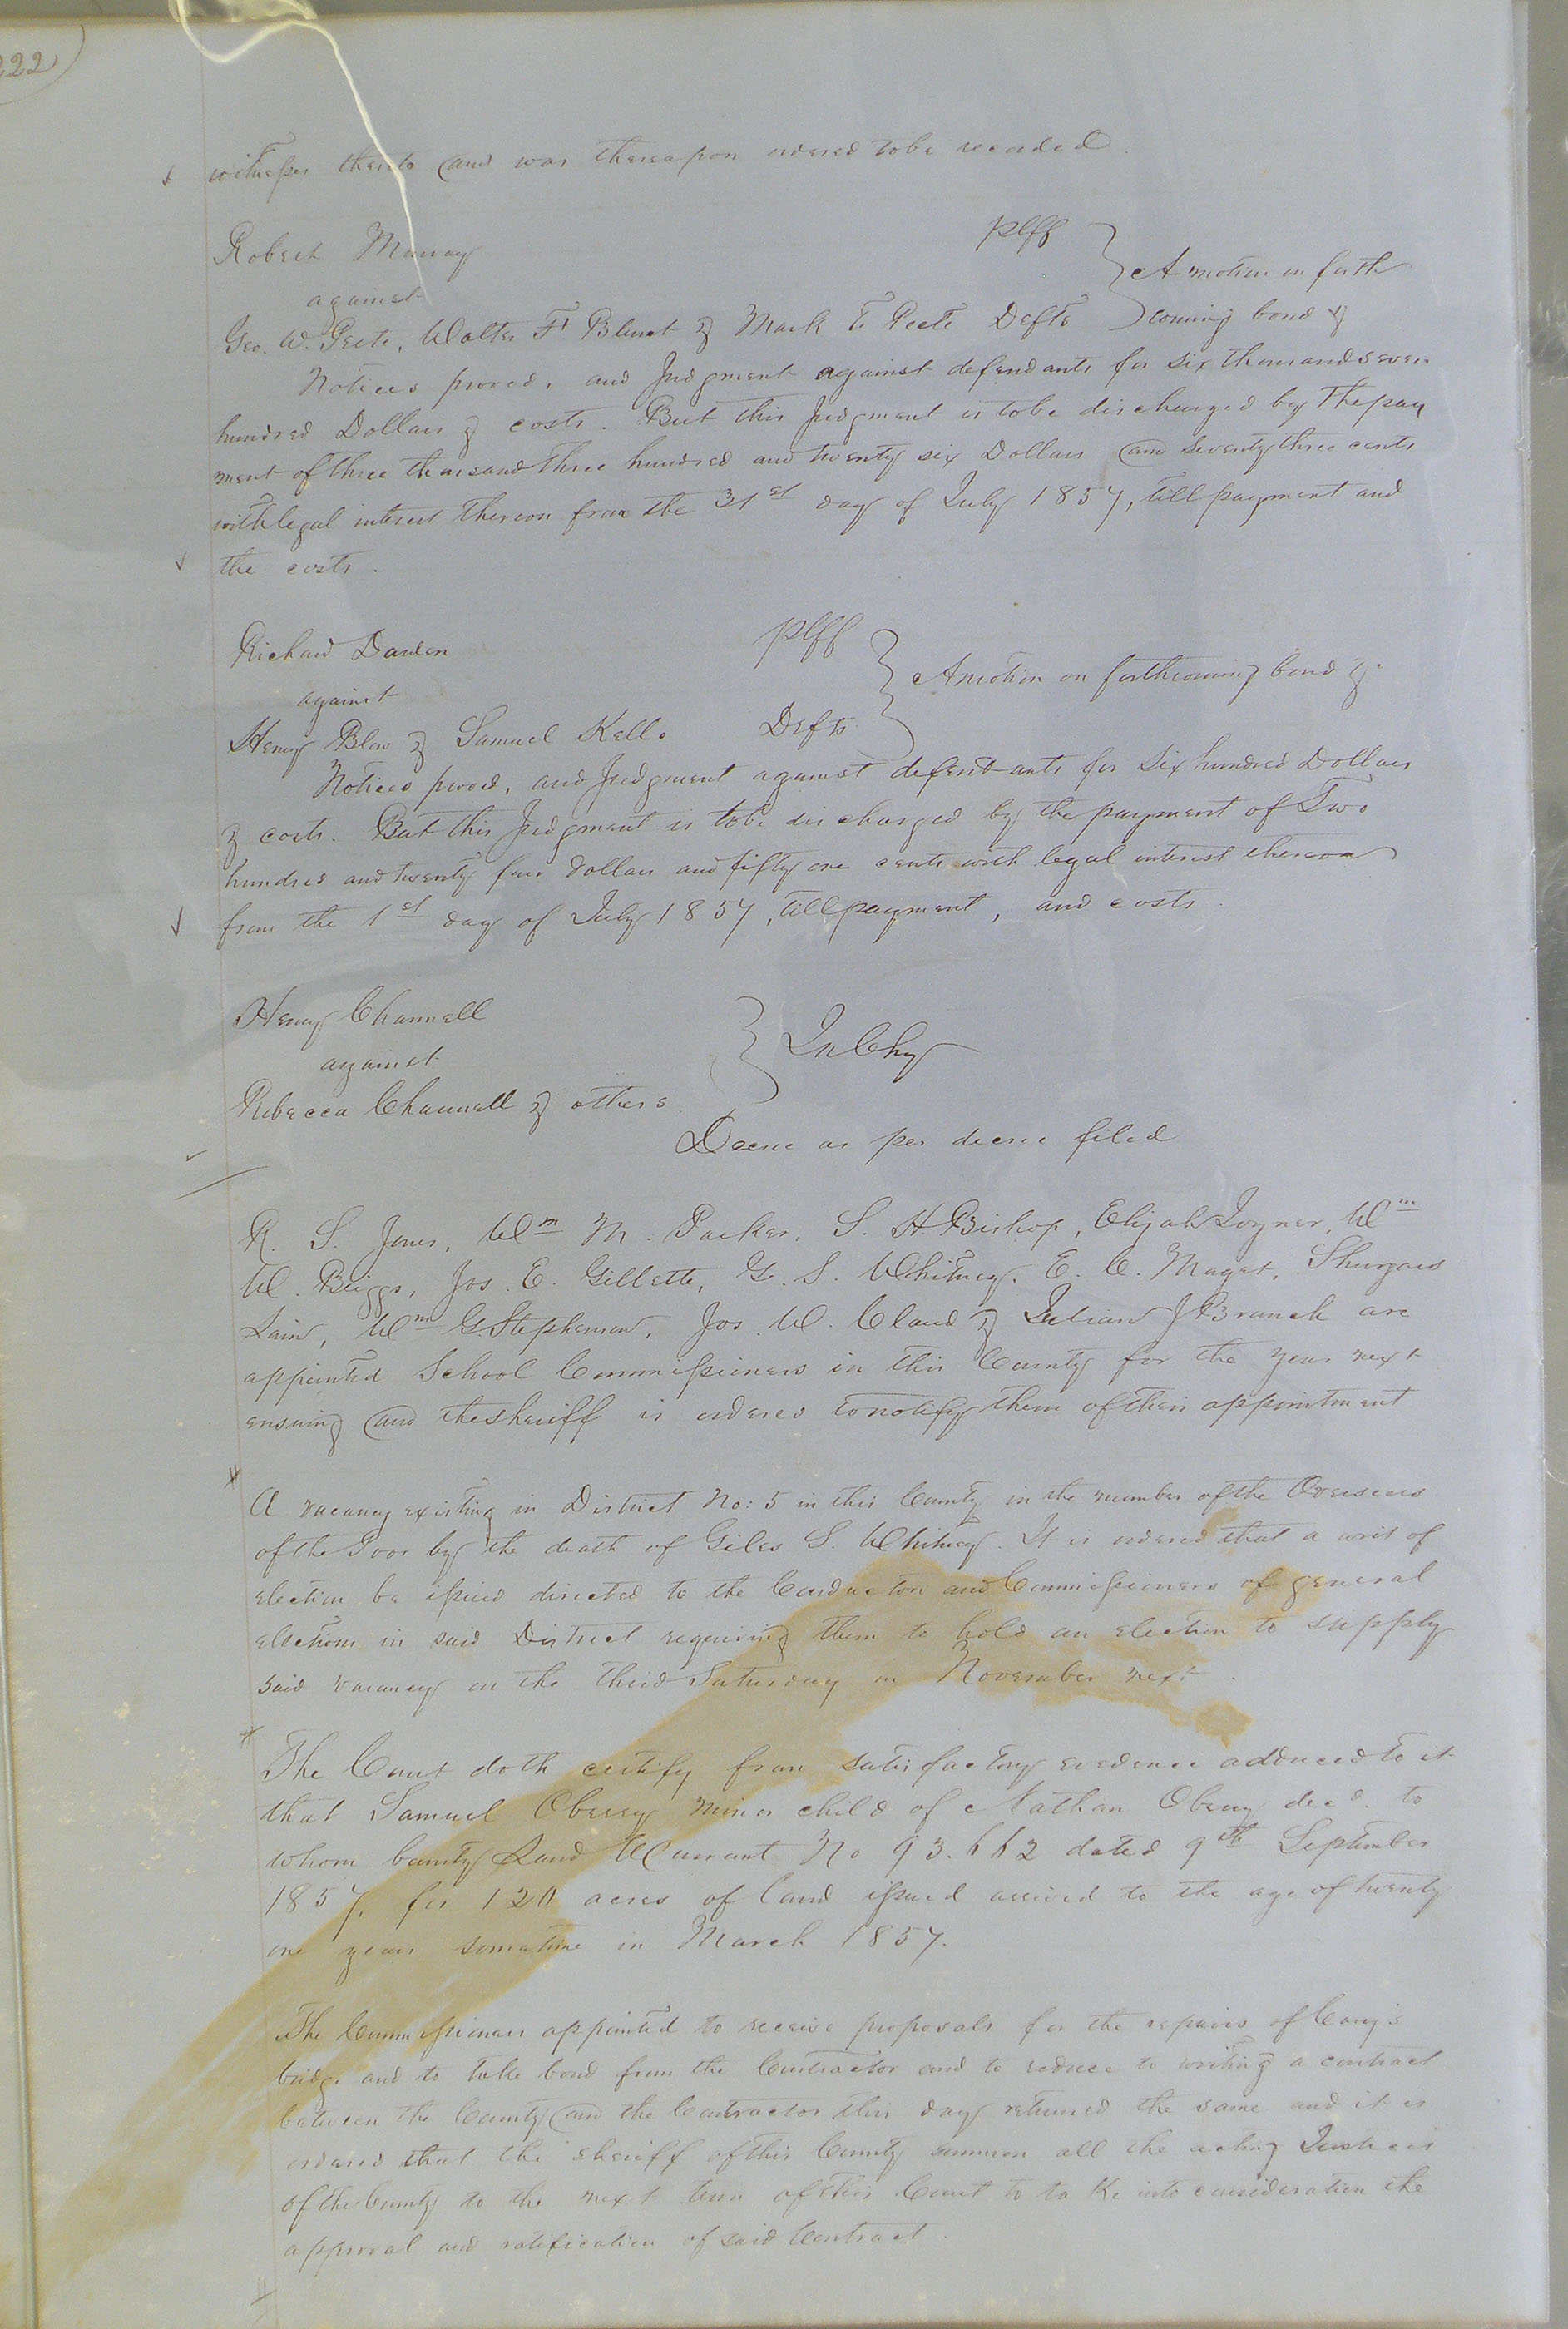 222
witnesses thereto and was thereupon ordered to be recorded.
Robert Murray Plff
against A motion on forth
Geo. W. Peete, Walter F. Blunt & Mark E Peete Defts coming bond &
Notices proved, and Judgment against defendants for six thousand seven
hundred Dollars & costs. But this Judgment is to be discharged by the pay
ment of three thousand three hundred and twenty six Dollars and seventy three cents
with legal interest thereon from the 31st day of July 1857, till payment and
the costs.
Richard Darden Plff
against A motion on forthcoming bond &.
Henry Blow & Samuel Kello Defts
Notices proved, and Judgment against defendants for six hundred Dollars
& costs. But this Judgment is to be discharged by the payment of Two
hundred and twenty four dollars and fifty one cents with legal interest thereon
from the 1st day of July 1857, till payment, and costs.
Henry Channell
against In Chy
Rebecca Channell & others
Decree as per decree filed
R. S. Jones, Wm M. Parker, S. H. Bishop, Elijah Joyner, Wm
W. Briggs, Jos. E. Gillette, G. S. Whitney, E. C. Maget,
Lain, Wm G. Stephenson, Jos. W. Claud & J Branch are
appointed School Commissioners in this County for the year next
ensuing and the sheriff is ordered to notify them of their appointment
A vacancy existing in District No: 5 in this County in the number of the Overseers
of the Poor by the death of Giles S. Whitney. It is ordered that a writ of
election be issued directed to the Conductors and Commissioners of general
elections in said District requiring them to hold an election to supply
said vacancy on the third Saturday in November next.
The Court doth certify from satisfactory evidence adduced to it
that Samuel Oberry minor child of Nathan Oberry decd. to
whom bounty Land Warrant No 93.662 dated 9th September
1857, for 120 acres of land issued arrived to the age of twenty
one years sometime in March 1857.
The Commissioners appointed to receive proposals for the repairs of Cary's
bridge and to take bond from the Contractor and to reduce to writing a contract
between the County and the Contractor this day returned the same and it is
ordered that the sheriff of this County summon all the acting Justices
of the County to the next term of this Court to take into consideration the
approval and ratification of said Contract.